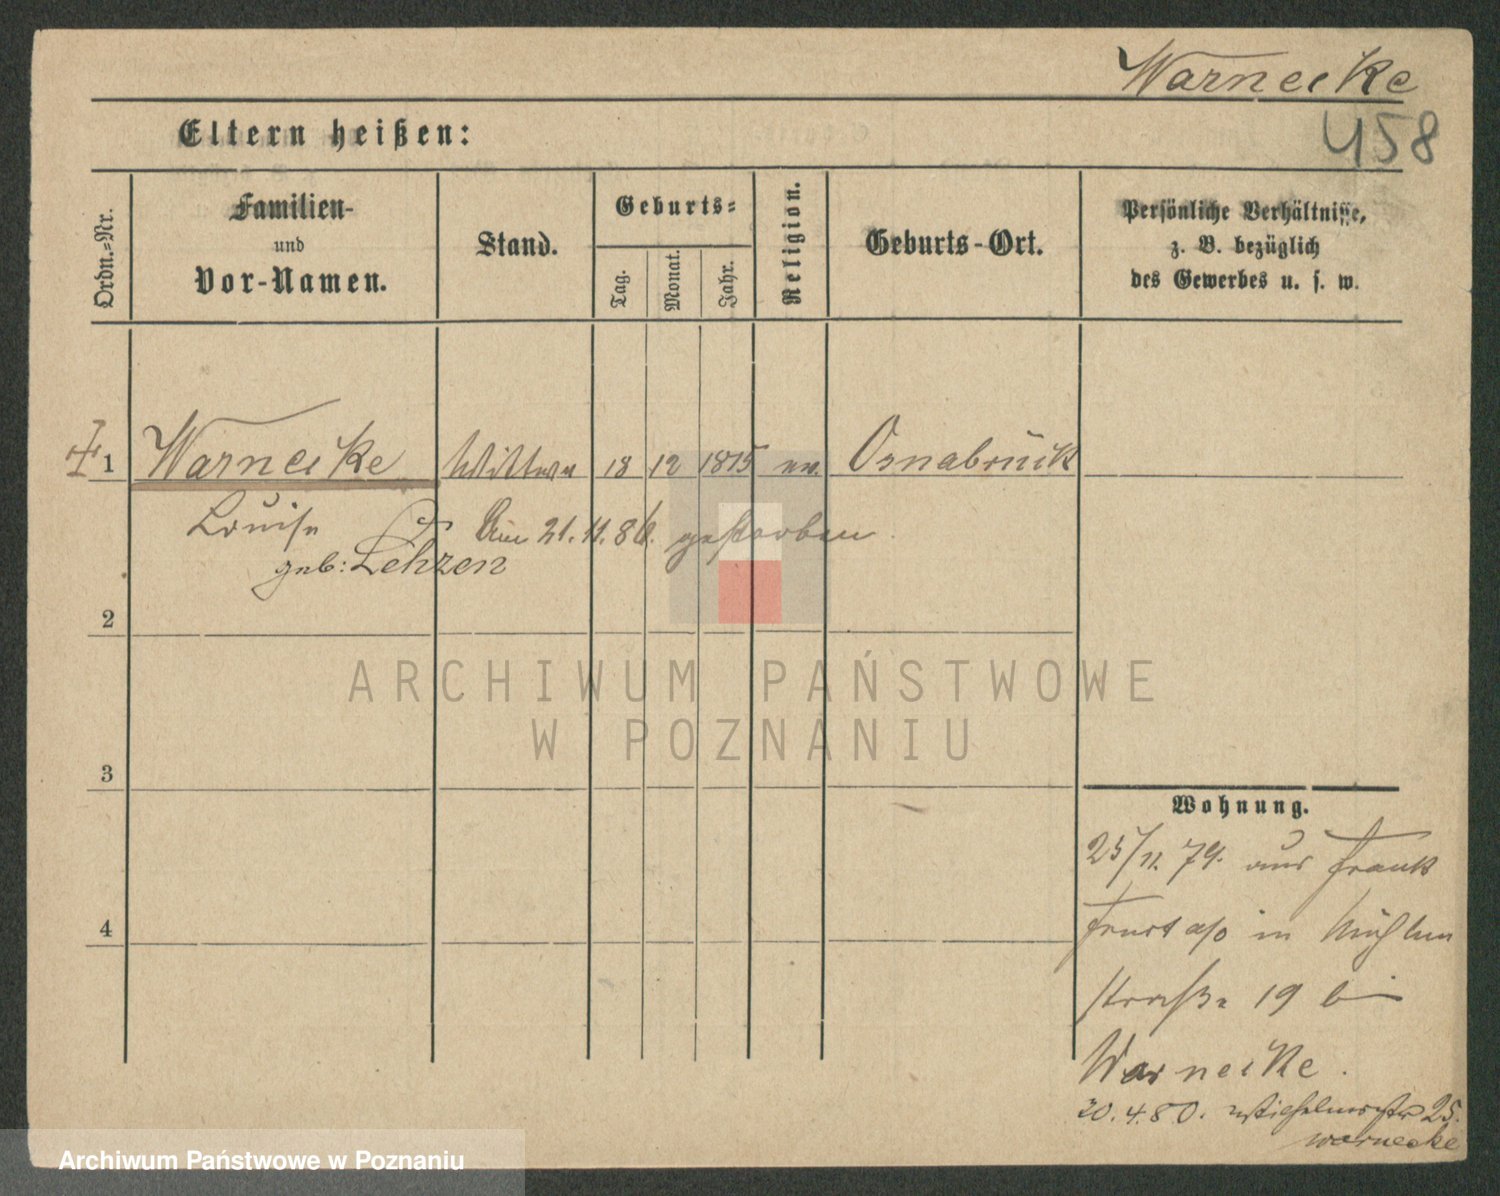 Warnecke
458
Eltern heißen:
Ordn.=Nr.
Familien-
und
Vor-Namen.
Stand.
Geburts=
Tag.
Monat.
Jahr.
Religion.
Geburts-Ort.
Persönliche Verhältnisse,
z. B. bezüglich
des Gewerbes u. s. w.
1 Warnecke Wittwe 18 12 1815 ev. Osnabrück
Louise Am 21.11.86. gestorben.
geb: Lehzen
2
3
4
Wohnung.
25/11. 79. aus Frank
furt a/o in Mühlen
straße 19 bei
Warnecke.
20.4.80. Wilhelmstr 25.
Warnecke
ARCHIWUM PAŃSTWOWE
W POZNANIU
Archiwum Państwowe w Poznaniu